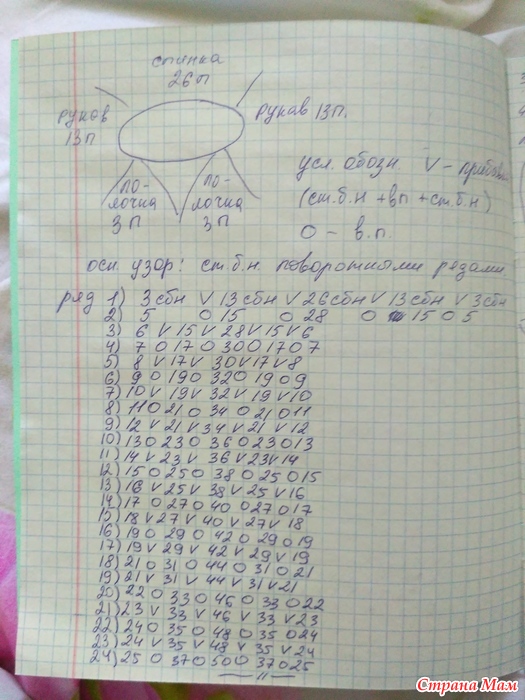 спинка
26п
рукав
13п
рукав 13п.
по-
лочка
3п
по-
лочка
3п
усл. обозн. V – прибавл
(ст.б.н +вп +ст.б.н)
О – в.п.
осн. узор: ст б.н. поворотными рядами
ряд 1) 3 сбн V 13 сбн V 26 сбн V 13 сбн V 3 сбн
2) 5 О 15 О 28 О 15 О 5
3) 6 V 15 V 28 V 15 V 6
4) 7 О 17 О 30 О 17 О 7
5) 8 V 17 V 30 V 17 V 8
6) 9 О 19 О 32 О 19 О 9
7) 10 V 19 V 32 V 19 V 10
8) 11 О 21 О 34 О 21 О 11
9) 12 V 21 V 34 V 21 V 12
10) 13 О 23 О 36 О 23 О 13
11) 14 V 23 V 36 V 23 V 14
12) 15 О 25 О 38 О 25 О 15
13) 16 V 25 V 38 V 25 V 16
14) 17 О 27 О 40 О 27 О 17
15) 18 V 27 V 40 V 27 V 18
16) 19 О 29 О 42 О 29 О 19
17) 19 V 29 V 42 V 29 V 19
18) 21 О 31 О 44 О 31 О 21
19) 21 V 31 V 44 V 31 V 21
20) 22 О 33 О 46 О 33 О 22
21) 23 V 33 V 46 V 33 V 23
22) 24 О 35 О 48 О 35 О 24
23) 24 V 35 V 48 V 35 V 24
24) 25 О 37 О 50 О 37 О 25
— 11 —
Страна Мам